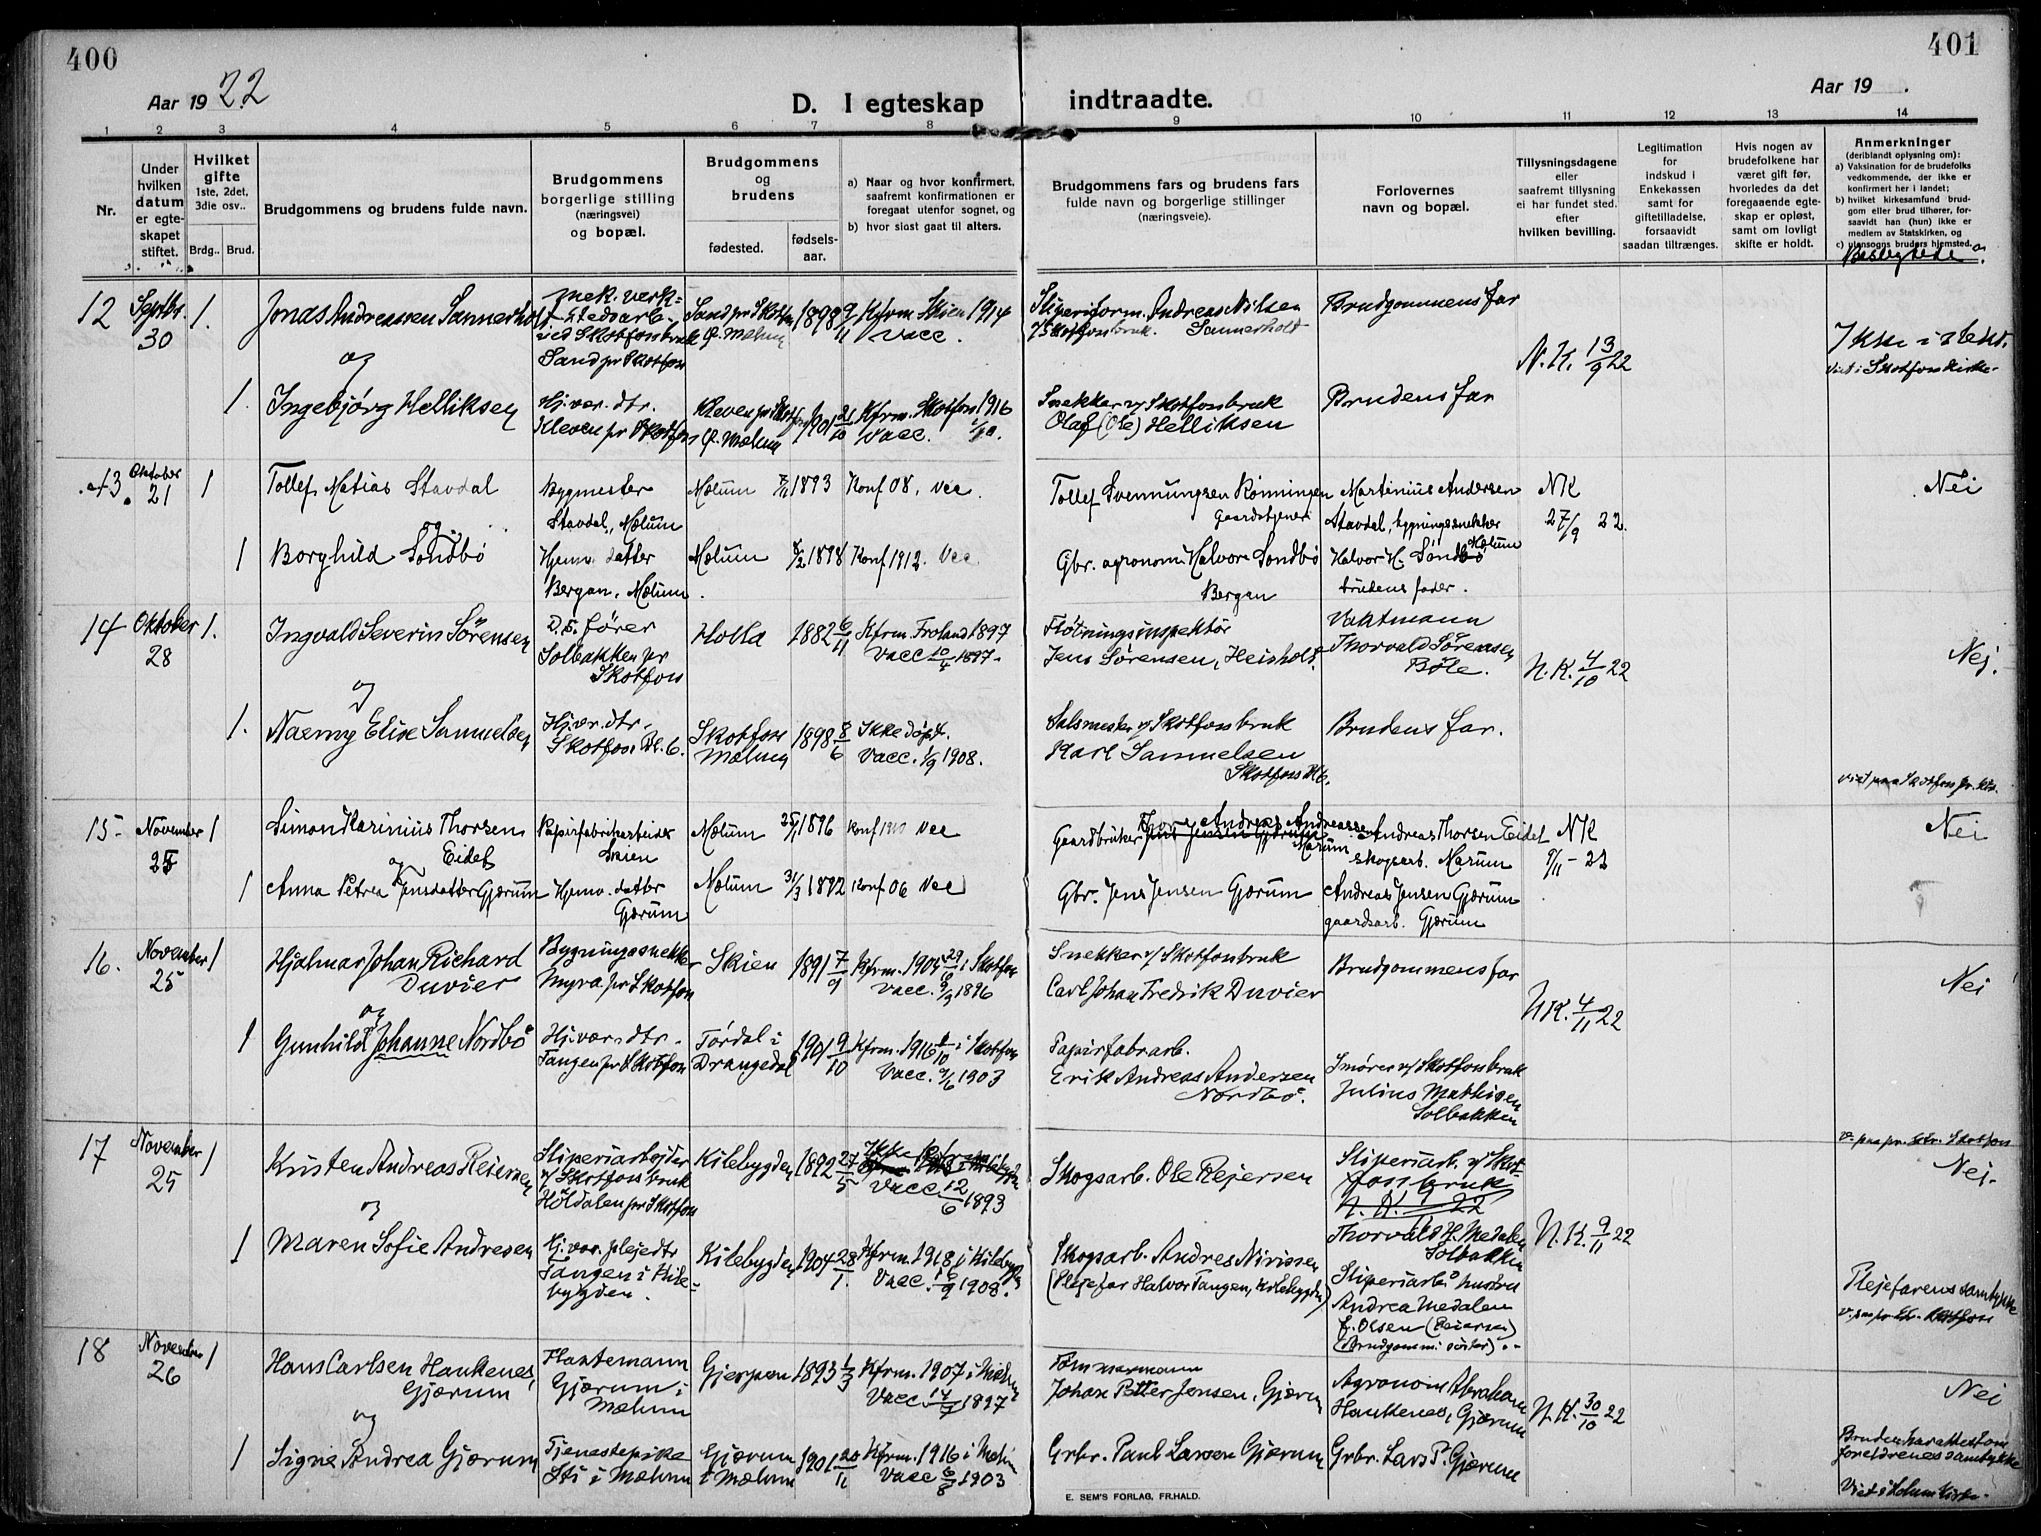 400
401
Aar 1922
D. I egteskap
indtraadte.
Aar 19 .
1 2 3 4 5 6 7 8 9 10 11 12 13 14
Nr.
Under
hvilken
datum
er egte-
skapet
stiftet.
Hvilket
gifte
1ste, 2det,
3die osv..
Brdg..
Brud.
Brudgommens og brudens fulde navn.
Brudgommens
borgerlige stilling
(næringsvei)
og bopæl.
Brudgommens
og
brudens
fødested.
fødsels-
aar.
a) Naar og hvor konfirmert,
saafremt konfirmationen er
foregaat utenfor sognet, og
b) hvor sidst gaat til alters.
Brudgommens fars og brudens fars
fulde navn og borgerlige stillinger
(næringsveie).
Forlovernes
navn og bopæl.
Tillysningsdagene
eller
saafremt tillysning
ei har fundet sted.
efter
hvilken bevilling.
Legitimation
for
indskud i
Enkekassen
samt for
giftetilladelse,
forsaavidt
saadan tiltrænges.
Hvis nogen av
brudefolkene har
været gift før,
hvorledes da det
foregaaende egte-
skap er opløst,
samt om lovligt
skifte er holdt.
Anmerkninger
(deriblandt oplysning om):
a) Vaksination for de brudefolks
vedkommende, der ikke er
konfirmert her i landet;
b) hvilket kirkesamfund brud-
gom eller brud tilhører, for-
saavidt han (hun) ikke er
medlem av Statskirken, og
c) utensogns bruders hjemsted.
Beslegtede
12
Septbr.
30
1.
Jonas Andreassen Sannerholt
og
mek. verk-
stedsarb.
ved Skotfossbruk
Sand pr Skotfoss
Sand pr Skotfoss
Mælum
1898 9/11
Kfrm. Skien 1914
Vacc.
Sliperiform. Andreas Nilsen
v/Skotfossbruk. Sannerholt
Brudgommens far
N. K. 13/9 22
Ikke i slekt.
Viet i Skotfoss kirke.
1.
Ingebjørg Helliksen
Hj.vær. dtr.
Kleven pr Skotfoss
Kleven pr Skotfoss
Mælum
1901 21/10
Kfrm. Skotfoss 1916
Vacc.
Snekker v/ Skotfossbruk
Olaf (Ole) Helliksen
Brudens far
13
Oktober
21
1
Tollef Matias Stavdal
og
Bygmester
Stavdal, Mælum
Mælum
1893
Konf 08. Vac.
Tollef Svennungsen Rönningen
Martinius Andersen
Stavdal, bygningssnekker
Mælum
NK
27/9 22.
Nei
1
Borghild Sondbö
Hjemv. datter
Bergan, Mælum.
Mælum
1898
Konf 1912. Vac
Gbr. agronom Halvor Sondbö
Bergan
Halvor H. Sondbö
brudens fader.
14
Oktober
28
1.
Ingvald Severin Sörensen
og
D.S. fører
Solbakken pr
Skotfoss
Holla
1882 6/11
Kfrm. Froland 1897
Vacc 10/4 1897.
Fløtningsinspektör
Jens Sørensen, Heisholt.
Vaktmann
Thorvald Sörensen
Böle.
N. K. 4/10 22
Nej.
1.
Naemy Elise Samuelsen
Hj.vær. dtr.
Skotfoss Bl. 6.
Skotfoss
Mælum
1898 8/6
Ikke döpt.
Vacc. 1/9 1908.
Salsmester v/ Skotfossbruk
Karl Samuelsen
Skotfoss Bl 6.
Brudens far.
viet paa Skotfoss pr. ktr.
15
November
25
1
Simon Karinius Thorsen
Eidet
og
Papirfabrikarbeider
Skien
Mælum
25/1 1896
Konf 1910 Vac
Gaardbruker Thor Andreas Andreassen
Marum
Andreas Thorsen Eidet
skogsarb. Marum
NK
9/11 - 22
Nei
1
Anna Petrea Jensdatter Gjærum
Hjemv. datter
Gjærum
Mælum
31/3 1892
Konf 06 Vac
Gbr. Jens Jensen Gjærum
Andreas Jensen Gjærum
gaardsarb. Gjærum
16.
November
25
1
Hjalmar Johan Richard
Duvier
og
Bygningssnekker
Myra pr Skotfoss
Skien
1891 7/9
Kfrm. 1905 29/6 i Skotfoss
Vacc. 9/9 1896
Snekker v/ Skotfossbruk
Carl Johan Fredrik Duvier
Brudgommens far
N.K. 4/11 22
Nei
1
Gunhild Johanne Nordbö
Hj.vær. dtr.
Tangen pr Skotfoss
Tørdal i
Drangedal
1901 9/10
Kfrm. 1916 8/10 i Skotfoss
Vacc. 9/6 1903
Papirfabrarb.
Erik Andreas Andersen
Nordbö.
Smörer v/ Skotfossbruk
Julius Mathisen
Solbakken
V. paa pr. ktr. Skotfoss
17
November
25
1
Kristen Andreas Reiersen
og
Sliperiarbejder
v/ Skotfossbruk
Höldalen pr Skotfoss
Kilebygden
1892 27/5
Vacc. 12/6 1893
Skogsarb. Ole Rejersen
Sliperiarb. v/ Skot-
fossbruk
N. K. 22
Thorvald H. Medalen
Solbakken
N. K. 9/11 22
Nei.
1
Maren Sofie Andresen
Hj.vær. plejedtr
Tangen i Kile-
bygden.
Kilebygden
1904 28/1.
Kfrm. 1918 i Kilebygden
Vacc. 16/9 1908.
Skogsarb. Andres Nirissen
(Plejefar Halvor Tangen, Kilebygden)
Sliperiarb's hustru
Andrea Medalen
f. Olsen (Reiersen)
(Brudgommens söster)
Plejefarens samtykke
V. paa pr. ktr. Skotfoss
18
November
26
1
Hans Carlsen Haukenes,
Gjærum
og
Flaatemann
Gjærum i
Mælum
Gjerpen
1893 1/3
Kfrm. 1907 i Mælum
Vacc. 14/7 1897
Tømmermann
Johan Petter Jensen, Gjærum
Agronom Abraham
Haukenes, Gjærum
N. K. 30/10 22
Nei
1
Signe Andrea Gjærum
Tjenestepike
Sti i Mælum
Gjærum
i Mælum
1901 20/11
Kfrm. 1916 i Mælum
Vacc 6/8 1903
Grbr. Paul Larsen Gjærum
Grbr. Lars P. Gjærum
Bruden har attest om
foreldrenes samtykke
Viet i Solum kirke.
E. SEM'S FORLAG, FR.HALD.